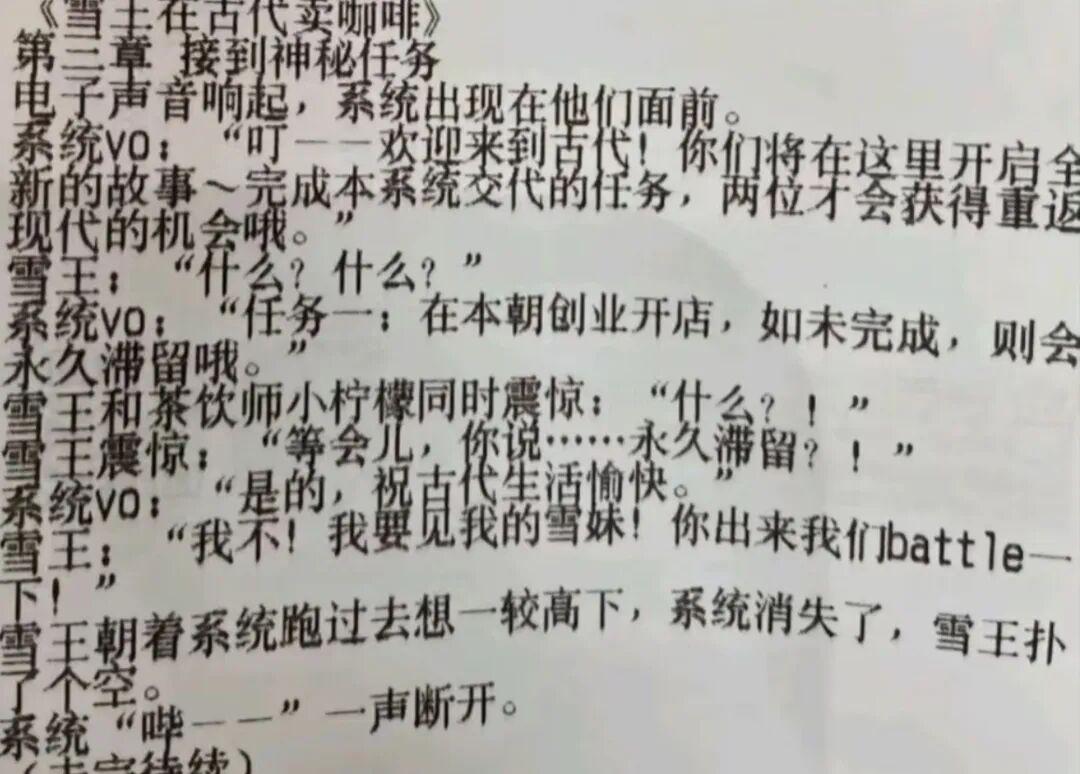 《雪王在古代卖咖啡》
第三章 接到神秘任务
电子声音响起，系统出现在他们面前。
系统vo：“叮——欢迎来到古代！你们将在这里开启全
新的故事～完成本系统交代的任务，两位才会获得重返
现代的机会哦。”
雪王：“什么？什么？”
系统vo：“任务一：在本朝创业开店，如未完成，则会
永久滞留哦。”
雪王和茶饮师小柠檬同时震惊：“什么？！”
雪王震惊：“等会儿，你说……永久滞留？！”
系统vo：“是的，祝古代生活愉快。”
雪王：“我不！我要见我的雪妹！你出来我们battle一
下！”
雪王朝着系统跑过去想一较高下，系统消失了，雪王扑
了个空。
系统“哔——”一声断开。
（未完待续）